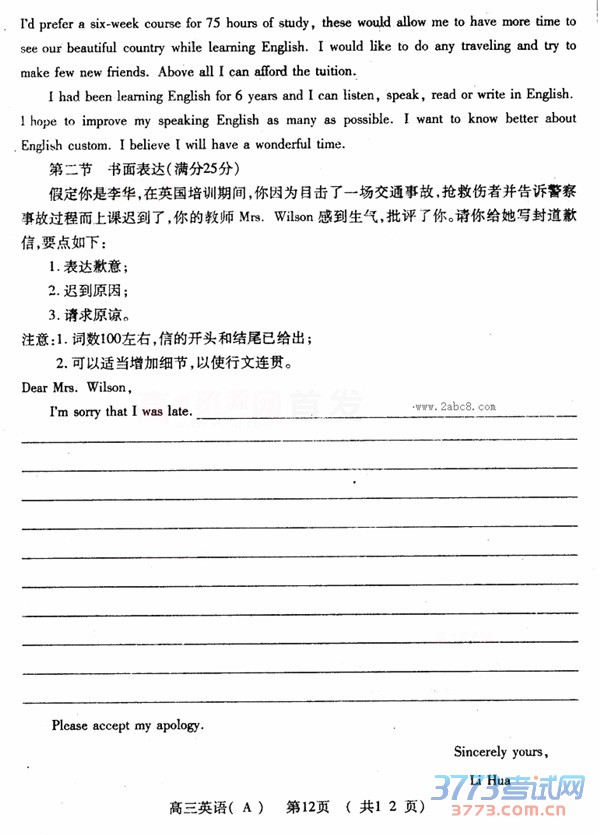 I'd prefer a six-week course for 75 hours of study, these would allow me to have more time to
see our beautiful country while learning English. I would like to do any traveling and try to
make few new friends. Above all I can afford the tuition.
I had been learning English for 6 years and I can listen, speak, read or write in English.
I hope to improve my speaking English as many as possible. I want to know better about
English custom. I believe I will have a wonderful time.
第二节 书面表达(满分25分)
假定你是李华,在英国培训期间,你因为目击了一场交通事故,抢救伤者并告诉警察
事故过程而上课迟到了,你的教师 Mrs. Wilson 感到生气,批评了你。请你给她写封道歉
信,要点如下:
1. 表达歉意;
2. 迟到原因;
3. 请求原谅。
注意:1. 词数100左右,信的开头和结尾已给出;
2. 可以适当增加细节,以使行文连贯。
Dear Mrs. Wilson,
I'm sorry that I was late.
首发
www.2abc8.com
Please accept my apology.
Sincerely yours,
Li Hua
高三英语( A ) 第12页 ( 共1 2 页)
3773考试网
3773.com.cn